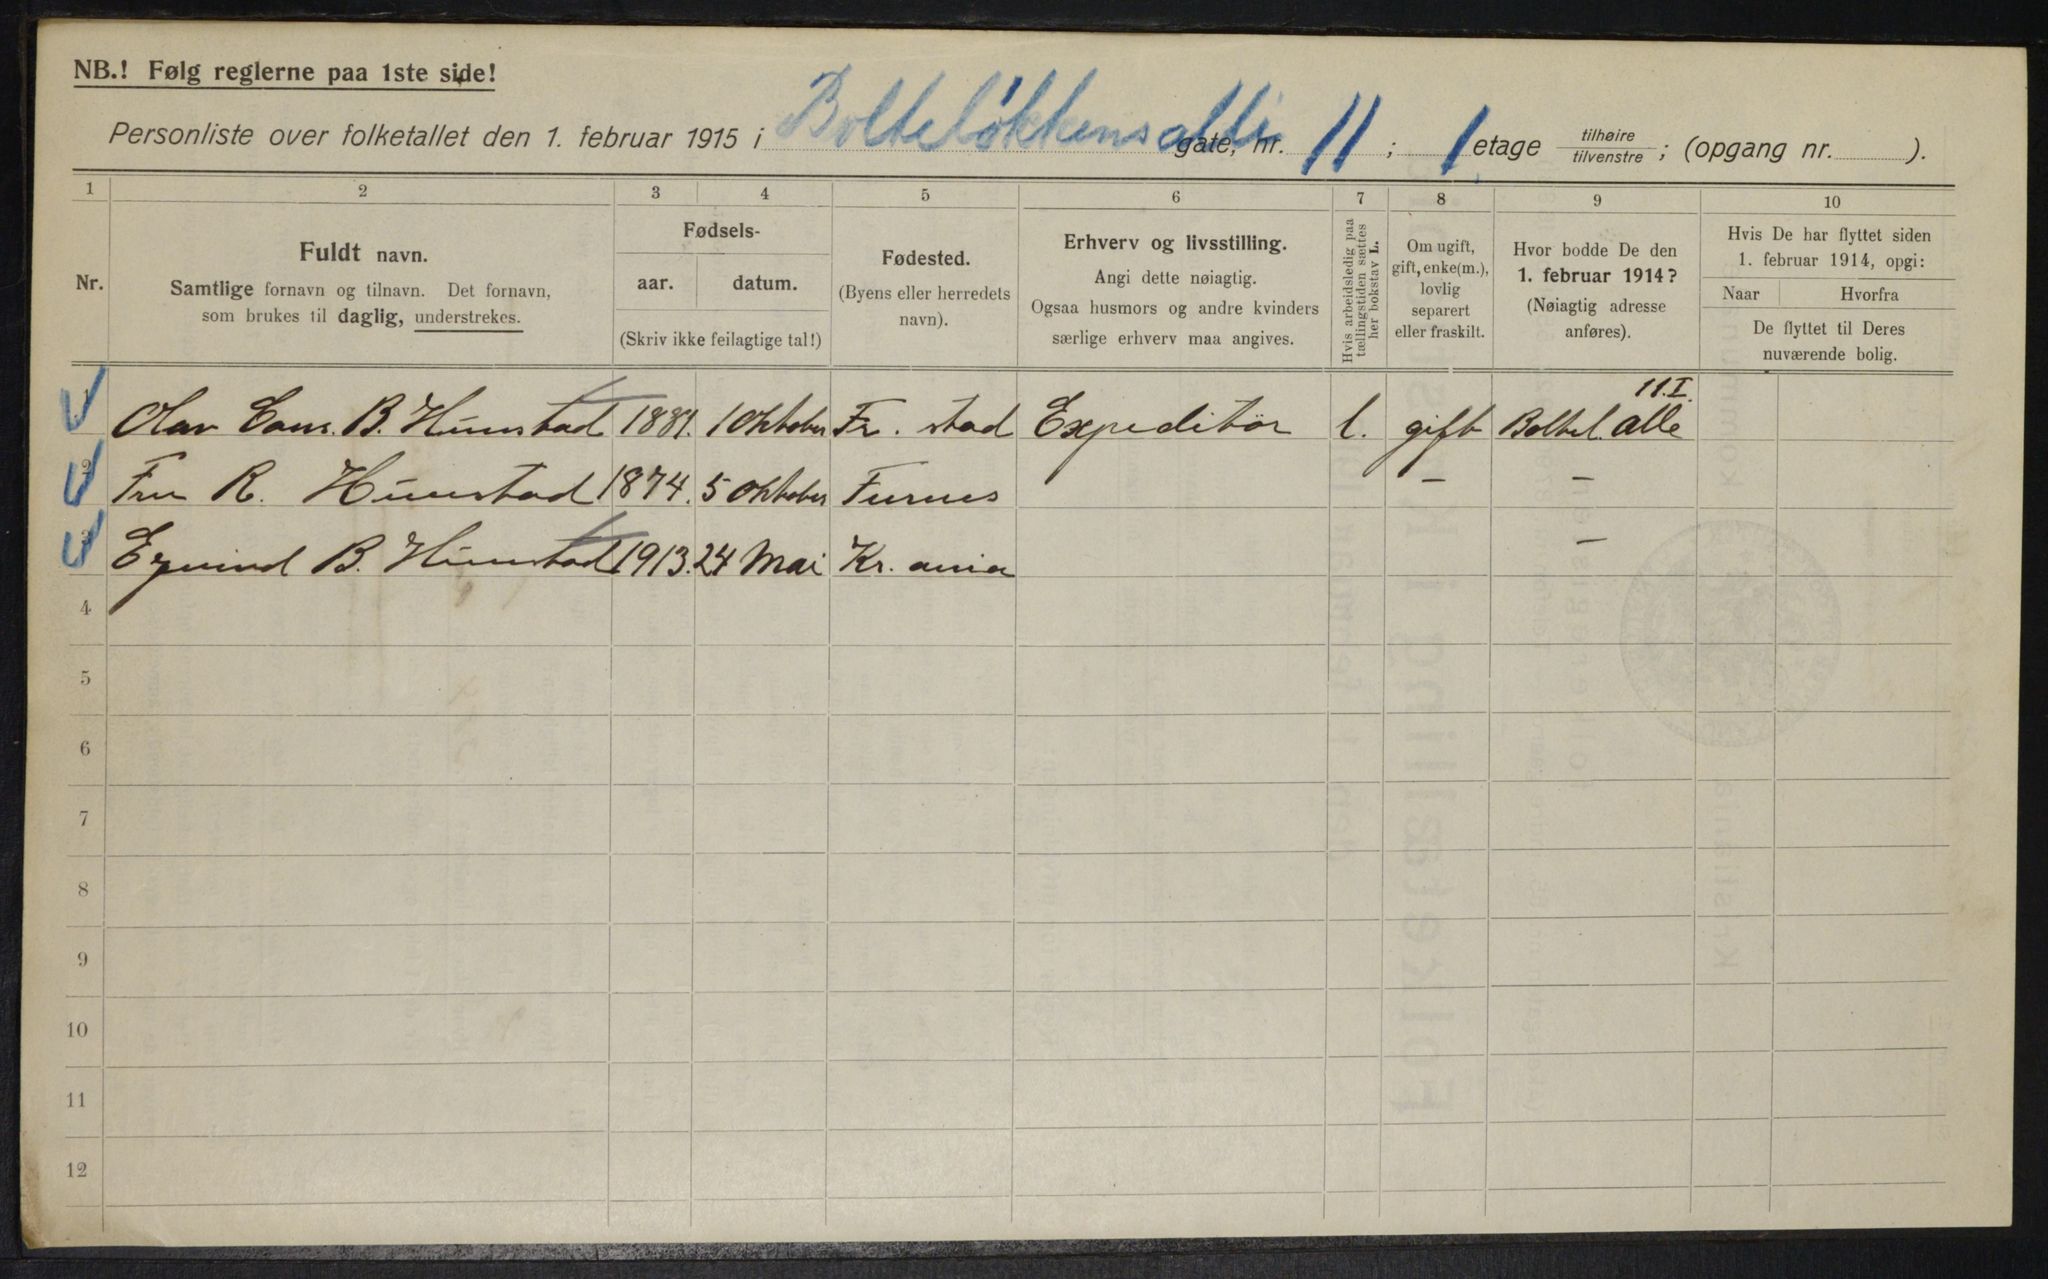 NB.! Følg reglerne paa 1ste side!
Personliste over folketallet den 1. februar 1915 i Bolteløkkens allé gate, nr. 11 ; 1 etage tilhøire/tilvenstre ; (opgang nr. ).
1 2 3 4 5 6 7 8 9 10
Nr.
Fuldt navn.
Samtlige fornavn og tilnavn. Det fornavn,
som brukes til daglig, understrekes.
Fødsels-
aar. datum.
(Skriv ikke feilagtige tal!)
Fødested.
(Byens eller herredets
navn).
Erhverv og livsstilling.
Angi dette nøiagtig.
Ogsaa husmors og andre kvinders
særlige erhverv maa angives.
Hvis arbeidsledig paa
tællingstiden sættes
her bokstav L.
Om ugift,
gift, enke(m.),
lovlig
separert
eller fraskilt.
Hvor bodde De den
1. februar 1914?
(Nøiagtig adresse
anføres).
Hvis De har flyttet siden
1. februar 1914, opgi:
Naar Hvorfra
De flyttet til Deres
nuværende bolig.
11.I.
1 Olav B. Hunstad 1881. 1 Oktober Fr. stad Expeditør l. gift Boltel. alle
2 Fru R. Hunstad 1874. 5 Oktober Furnes – –
3 Eyvind B. Hunstad 1913. 24 Mai Kr. ania –
4
5
6
7
8
9
10
11
12